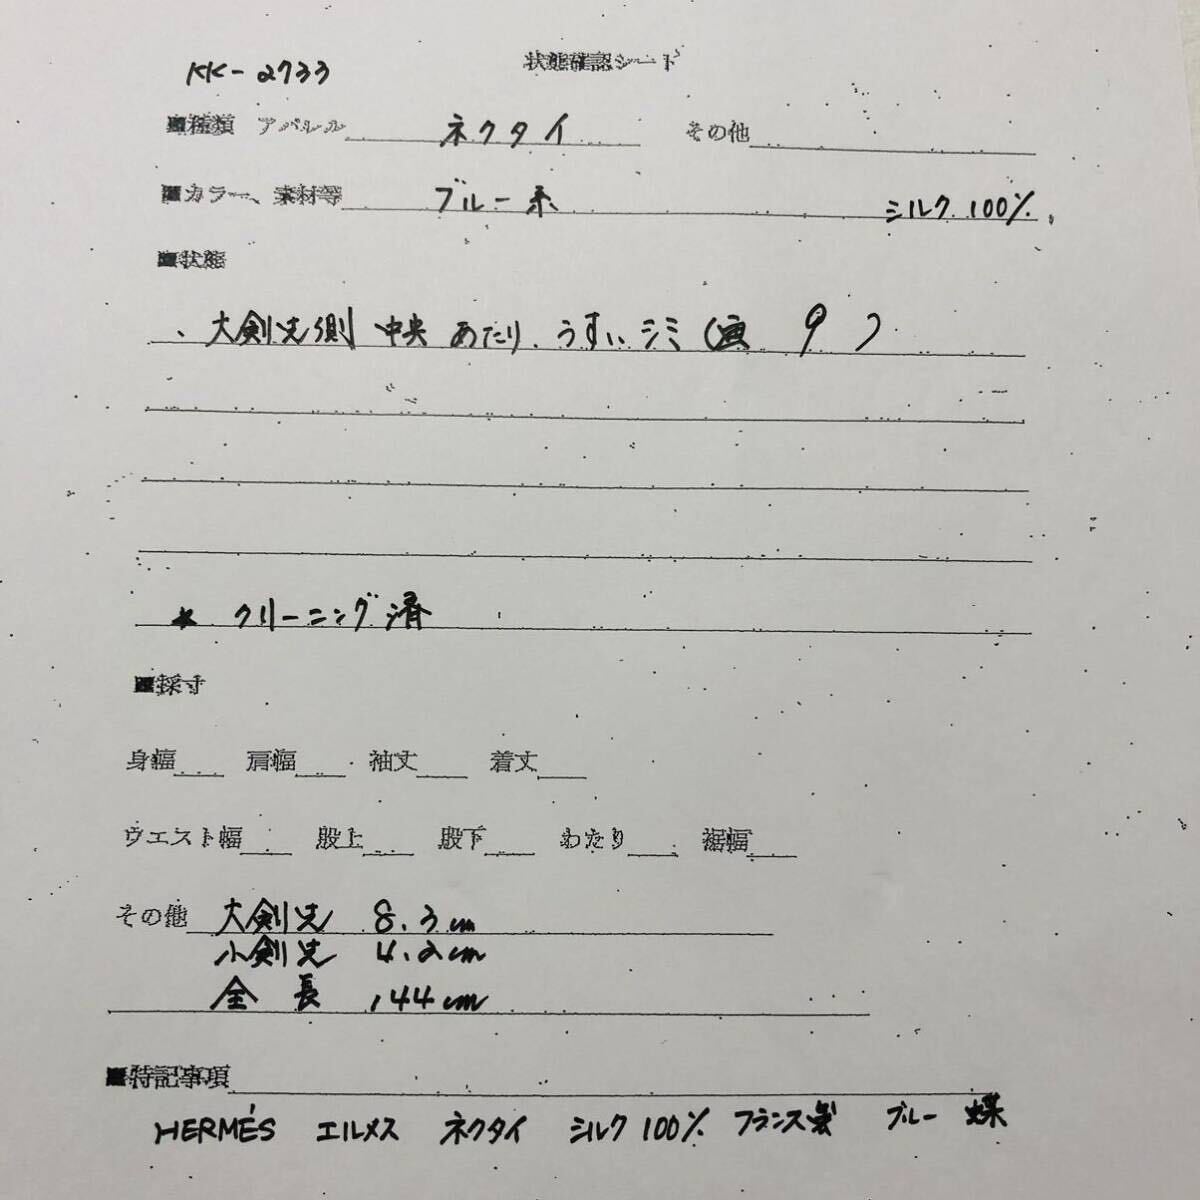 KK-2733 状態確認シート
■種類 アパレル ネクタイ その他
■カラー、素材等 ブルー系 シルク 100%
■状態
、大剣先側 中央 あたり、うすいシミ (画 9 )
* クリーニング済
■採寸
身幅 肩幅 袖丈 着丈
ウエスト幅 股上 股下 わたり 裾幅
その他 大剣先 8.3cm
小剣先 4.2cm
全 長 144cm
■特記事項
HERMÉS エルメス ネクタイ シルク100% フランス製 ブルー 蝶